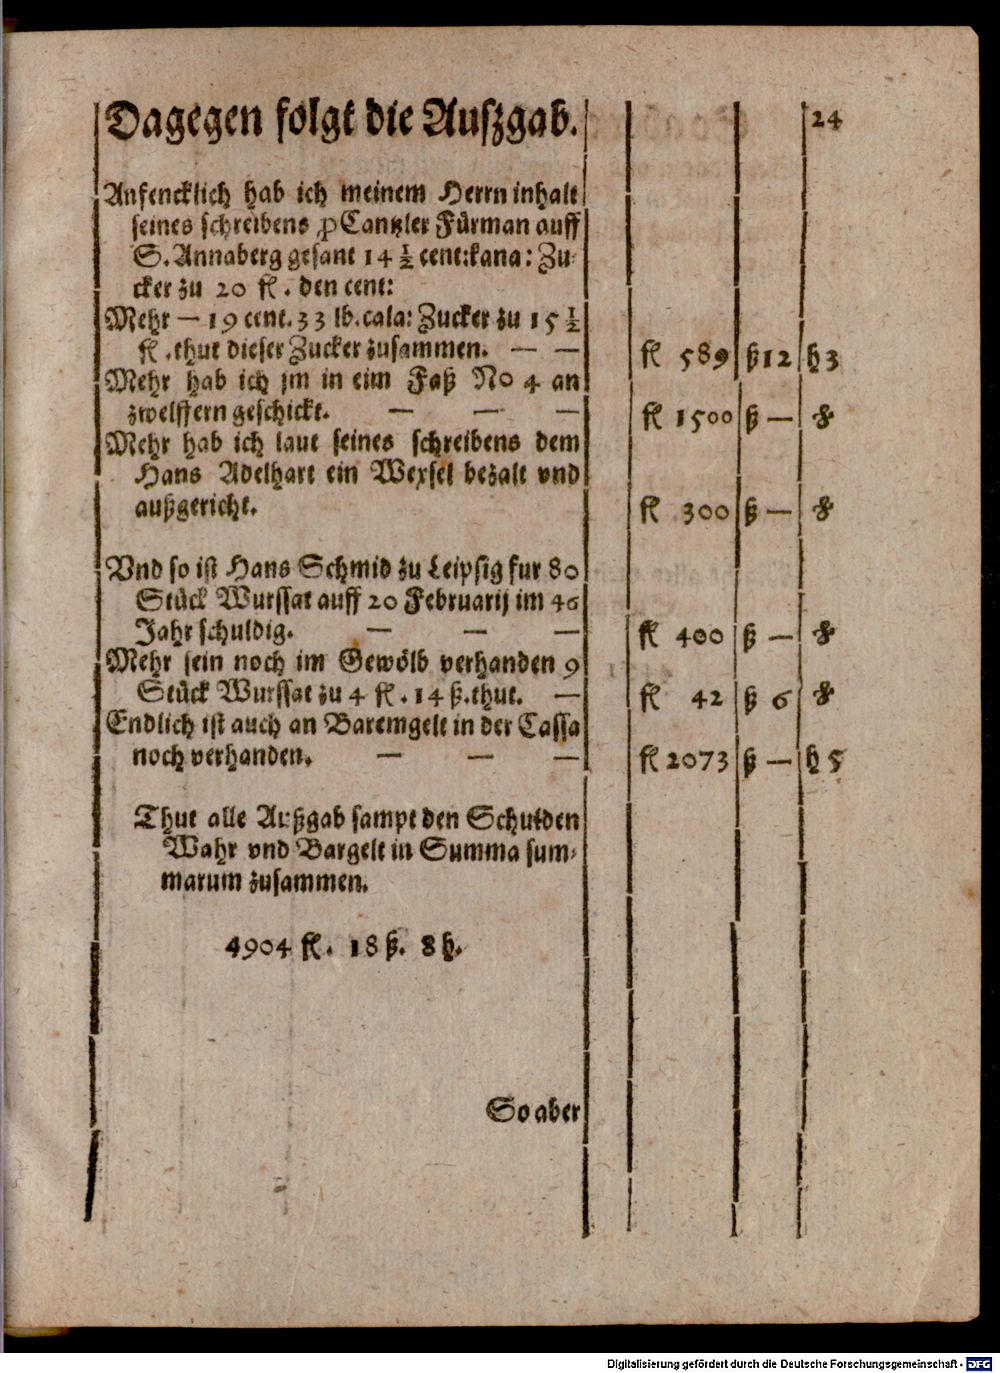 24
Dagegen folgt die Außzgab.
Anfencklich hab ich meinem Herrn inhalt
seines schreibens ꝓ Cantzler Fürman auff
S. Annaberg gesant 14 ½ cent: kana: Zu-
cker zu 20 fl. den cent:
Mehr — 19 cent. 33 lb. cala: Zucker zu 15 ½
fl. thut dieser Zucker zusammen. — — fl 589 ß 12 h 3
Mehr hab ich jm in eim Faß No 4 an
zwelffern geschickt. — — — fl 1500 ß —
Mehr hab ich laut seines schreibens dem
Hans Adelhart ein Wexsel bezalt vnd
außgericht. fl 300 ß —
Vnd so ist Hans Schmid zu Leipsig fur 80
Stück Wurssat auff 20 Februarij im 46
Jahr schuldig. — — — fl 400 ß —
Mehr sein noch im Gewölb verhanden 9
Stück Wurssat zu 4 fl. 14 ß. thut. — fl 42 ß 6
Endlich ist auch an Baremgelt in der Cassa
noch verhanden. — — — fl 2073 ß — h 5
Thut alle Außgab sampt den Schulden
Wahr vnd Bargelt in Summa sum-
marum zusammen.
4904 fl. 18 ß. 8 h.
So aber
Digitalisierung gefördert durch die Deutsche Forschungsgemeinschaft - DFG